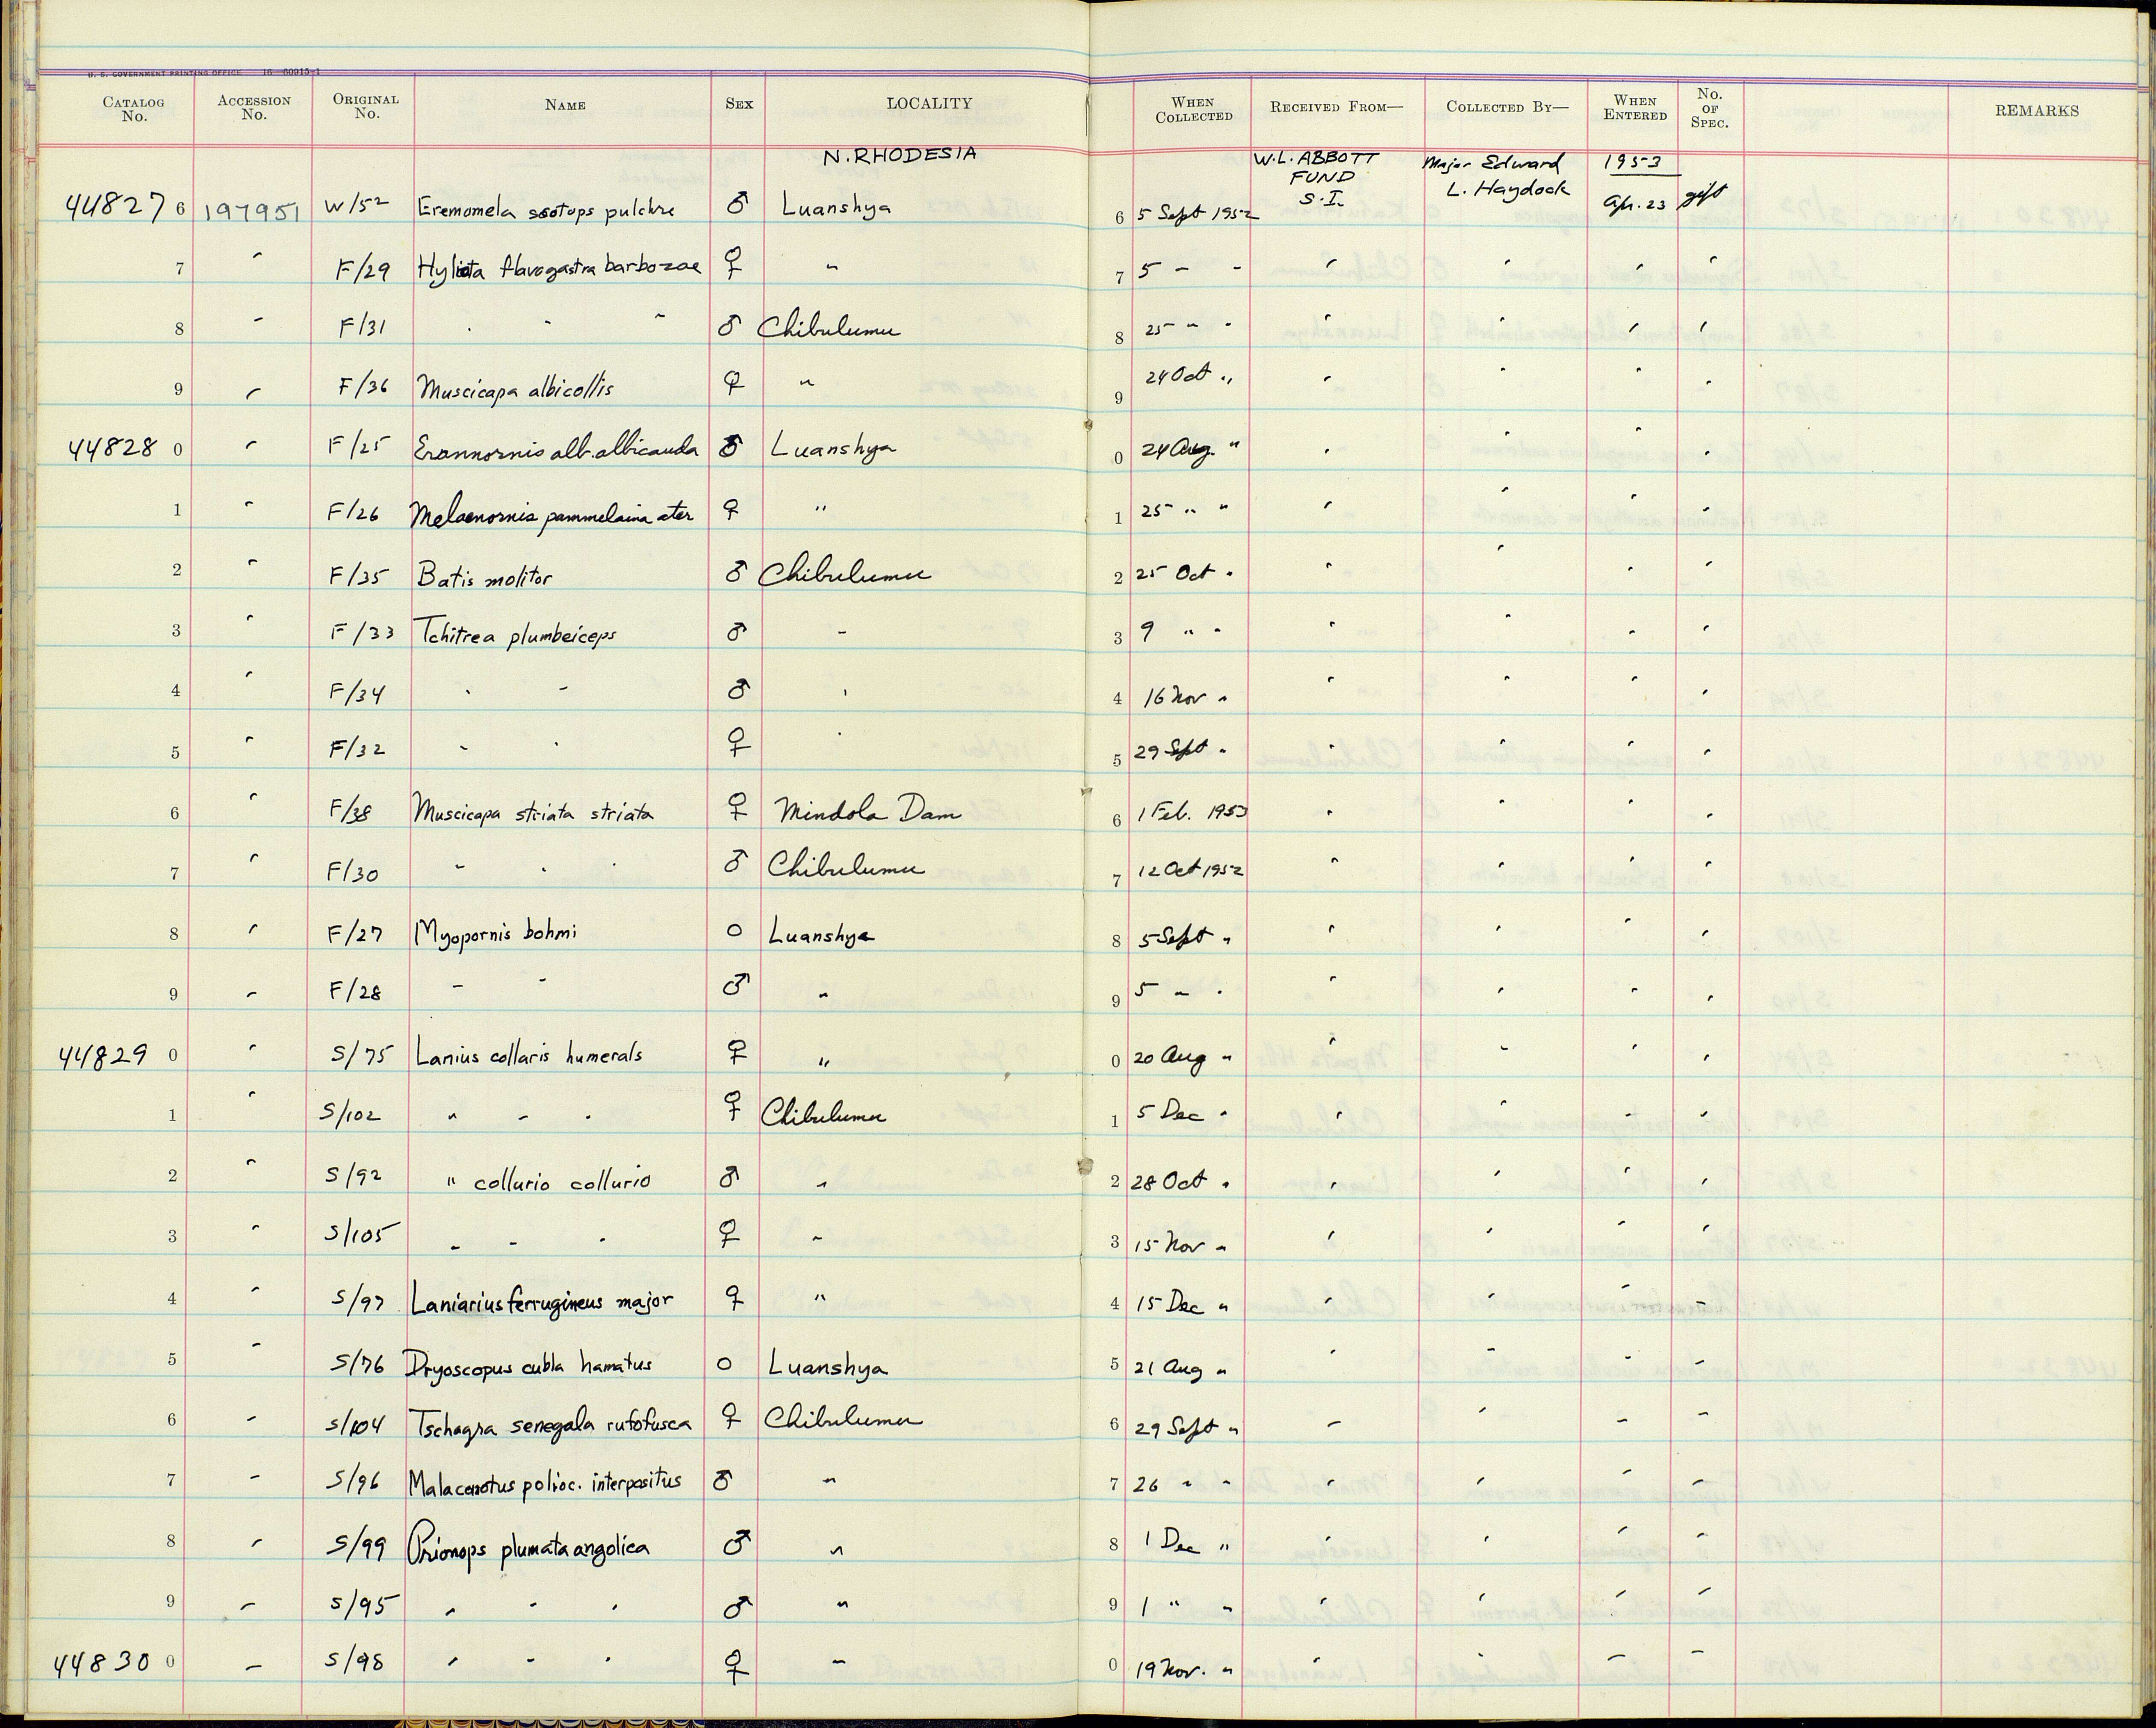 U. S. GOVERNMENT PRINTING OFFICE 16—60915-1
CATALOG No. ACCESSION No. ORIGINAL No. NAME SEX LOCALITY WHEN COLLECTED RECEIVED FROM— COLLECTED BY— WHEN ENTERED No. OF SPEC. REMARKS
N. RHODESIA W.L. ABBOTT FUND S.I. Major Edward L. Haydock 1953
44827 6 197951 W/52 Eremomela scotops pulchre ♂ Luanshya 6 5 Sept 1952 Apr. 23 gift
7 " F/29 Hyliota flavogastra barbozae ♀ " 7 5 " " " " " "
8 " F/31 " " " ♂ Chibulumu 8 25 " " " " " "
9 " F/36 Muscicapa albicollis ♀ " 9 24 Oct " " " " "
44828 0 " F/25 Erannornis alb. albicauda ♂ Luanshya 0 24 Aug. " " " " "
1 " F/26 Melaenornis pammelaina ater ♀ " 1 25 " " " " " "
2 " F/35 Batis molitor ♂ Chibulumu 2 25 Oct " " " " "
3 " F/33 Tchitrea plumbeiceps ♂ " 3 9 " " " " " "
4 " F/34 " " ♂ " 4 16 Nov " " " " "
5 " F/32 " " ♀ " 5 29 Sept " " " " "
6 " F/38 Muscicapa striata striata ♀ Mindola Dam 6 1 Feb. 1953 " " " "
7 " F/30 " " " ♂ Chibulumu 7 12 Oct 1952 " " " "
8 " F/27 Myopornis bohmi O Luanshya 8 5 Sept " " " " "
9 " F/28 " " ♂ " 9 5 " " " " " "
44829 0 " S/75 Lanius collaris humerals ♀ " 0 20 Aug " " " " "
1 " S/102 " " " ♀ Chibulumu 1 5 Dec " " " " "
2 " S/92 " collurio collurio ♂ " 2 28 Oct " " " " "
3 " S/105 " " " ♀ " 3 15 Nov " " " " "
4 " S/97 Laniarius ferrugineus major ♀ " 4 15 Dec " " " " "
5 " S/76 Dryoscopus cubla hamatus O Luanshya 5 21 Aug " " " " "
6 " S/104 Tschagra senegala rufofusca ♀ Chibulumu 6 29 Sept " " " " "
7 " S/96 Malaconotus polioc. interpositus ♂ " 7 26 " " " " " "
8 " S/99 Prionops plumata angolica ♂ " 8 1 Dec " " " " "
9 " S/95 " " " ♂ " 9 1 " " " " " "
44830 0 " S/98 " " " ♀ " 0 19 Nov. " " " " "